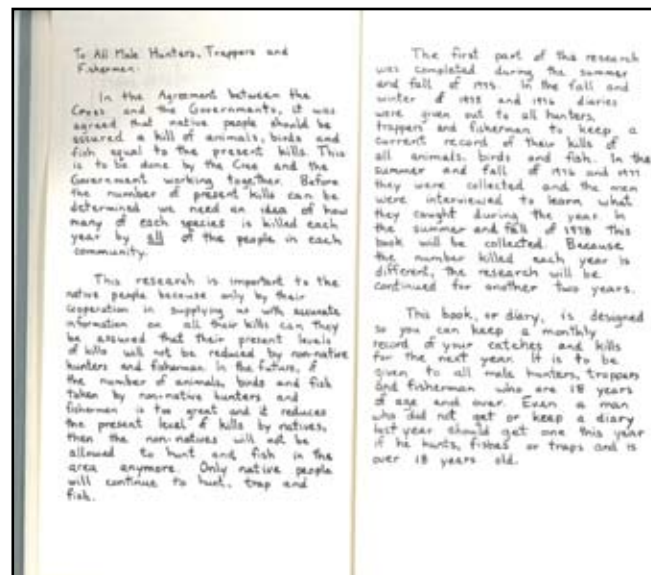 To All Male Hunters, Trappers and
Fishermen:
In the Agreement between the
Crees and the Governments, it was
agreed that native people should be
assured a kill of animals, birds and
fish equal to the present kills. This
is to be done by the Cree and the
Government working together. Before
the number of present kills can be
determined we need an idea of how
many of each species is killed each
year by all of the people in each
community.
This research is important to the
native people because only by their
cooperation in supplying us with accurate
information on all their kills can they
be assured that their present levels
of kills will not be reduced by non-native
hunters and fisherman. In the future, if
the number of animals, birds and fish
taken by non-native hunters and
fishermen is too great and it reduces
the present level of kills by natives,
then the non-natives will not be
allowed to hunt and fish in the
area anymore. Only native people
will continue to hunt, trap and
fish.
The first part of this research
was completed during the summer
and fall of 1975. In the fall and
winter of 1975 and 1976 diaries
were given out to all hunters,
trappers and fisherman to keep a
current record of their kills of
all animals, birds and fish. In the
summer and fall of 1976 and 1977
they were collected and the men
were interviewed to learn what
they caught during the year. In
the summer and fall of 1978 this
book will be collected. Because
the number killed each year is
different, the research will be
continued for another two years.
This book, or diary, is designed
so you can keep a monthly
record of your catches and kills
for the next year. It is to be
given to all male hunters, trappers
and fisherman who are 18 years
of age and over. Even a man
who did not get or keep a diary
last year should get one this year
if he hunts, fishes or traps and is
over 18 years old.